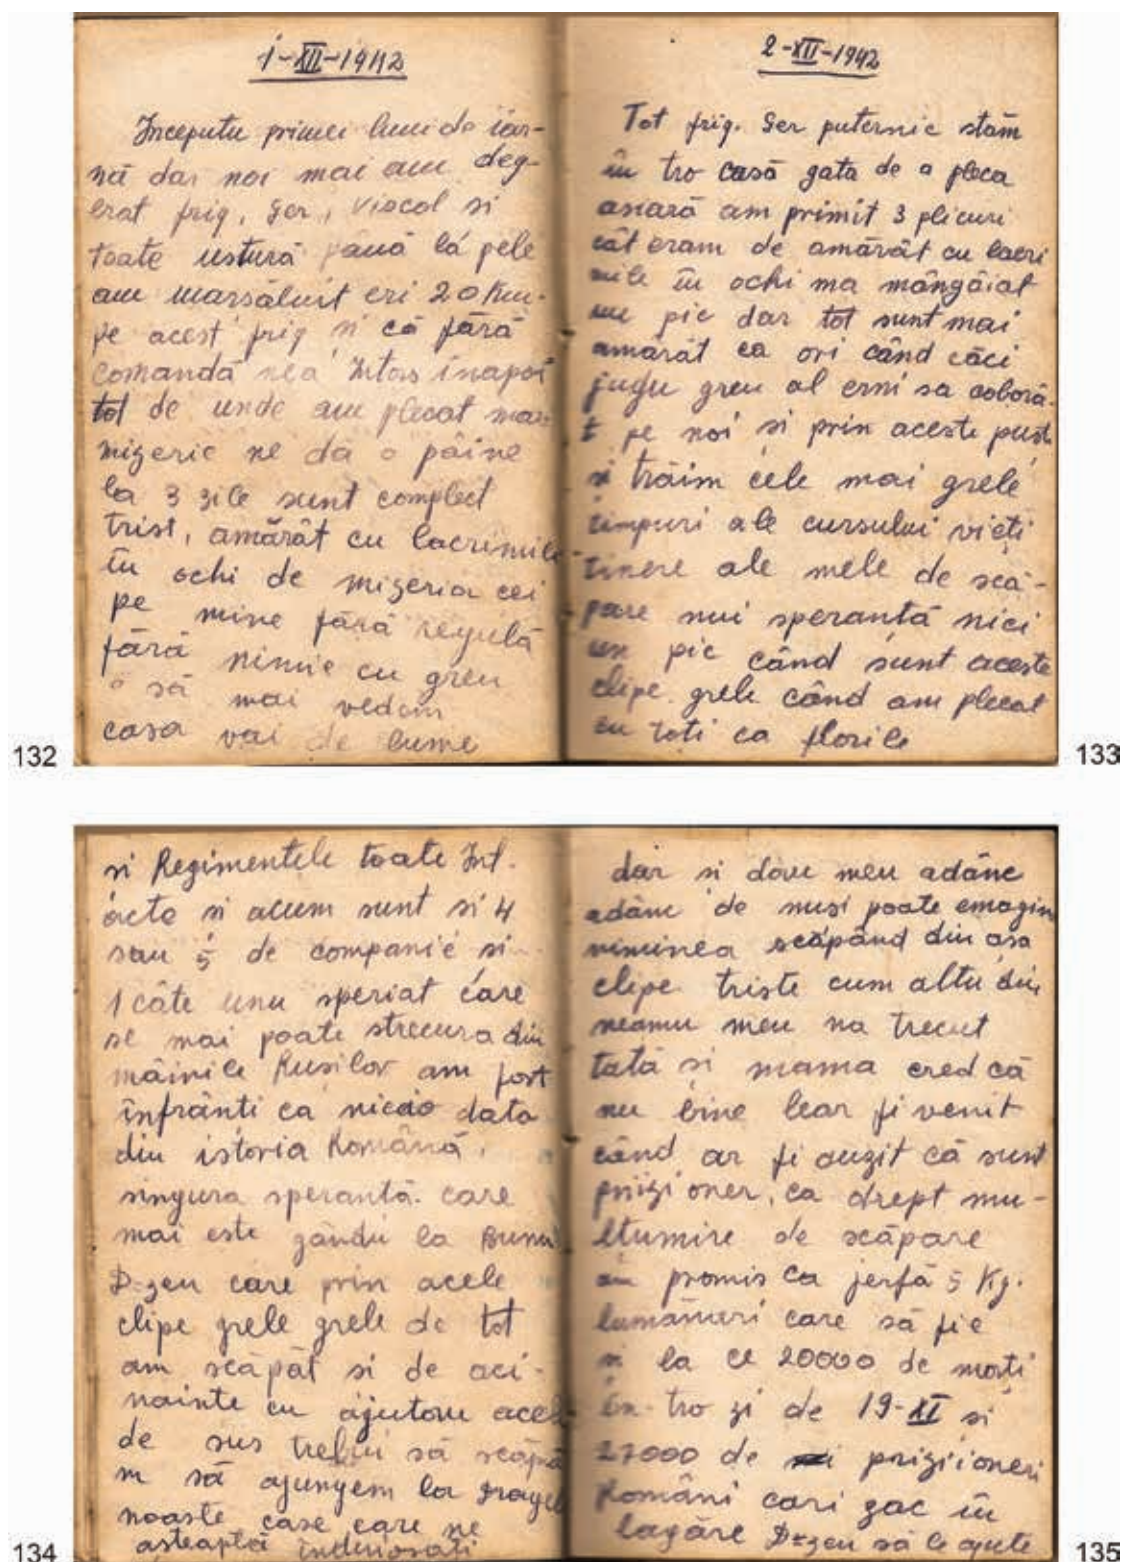 1-XII-1942
Începutu primei luni de iar-
nă dar noi mai am deg-
erat frig, ger, viscol si
toate ustură până lá pele
am marsăluit eri 20 Km.
pe acest frig si că fără
comandă nea întors inapoi
tot de unde am plecat mare
mizerie ne da o pâine
la 3 zile sunt complect
trist, amărât cu lacrimile
în ochi de mizeria cei
pe mine fără regulă
fără nimic cu greu
o să mai vedem
casa vai de lume
132
2-XII-1942
Tot frig. Ger puternic stăm
în tro casă gata de a pleca
asară am primit 3 plicuri
cât eram de amărât cu lacri
mile în ochi ma mângâiat
un pic dar tot sunt mai
amărât ca ori când căci
jugu greu al erni sa coborâ-
t pe noi si prin aceste pusti
si trăim cele mai grele
timpuri ale cursului vieti
tinere ale mele de scă-
pare nui sperantă nici
un pic când sunt aceste
clipe grele când am plecat
cu toti ca florile
133
si Regimentele toate Int.
acte si acum sunt si 4
sau 5 de companie si
1 câte unu speriat care
se mai poate strecura din
mâinile Rusilor am fost
înfrânti ca nicio data
din istoria Română,
singura sperantă care
mai este gândii la Bunu
D-zeu care prin acele
clipe grele grele de tot
am scăpat si de aci-
nainte cu ajutoru acel
de sus trebui să scăpă
m să ajungem la dragele
noaste case care ne
asteaptă înduiosati
134
dar si doru meu adânc
adânc de nusi poate emagin
niminea scăpând din asa
clipe triste cum altu din
neamu meu na trecut
tată si mama cred că
nu bine lear fi venit
când ar fi auzit că sunt
prizioner, ca drept mu-
ltumire de scăpare
am promis ca jerfă 5 Kg.
lumânări care să fie
si la ce 20000 de morti
în tro zi de 19-XI si
27000 de prizioneri
Români cari zac în
lagăre D-zeu să le ajute
135